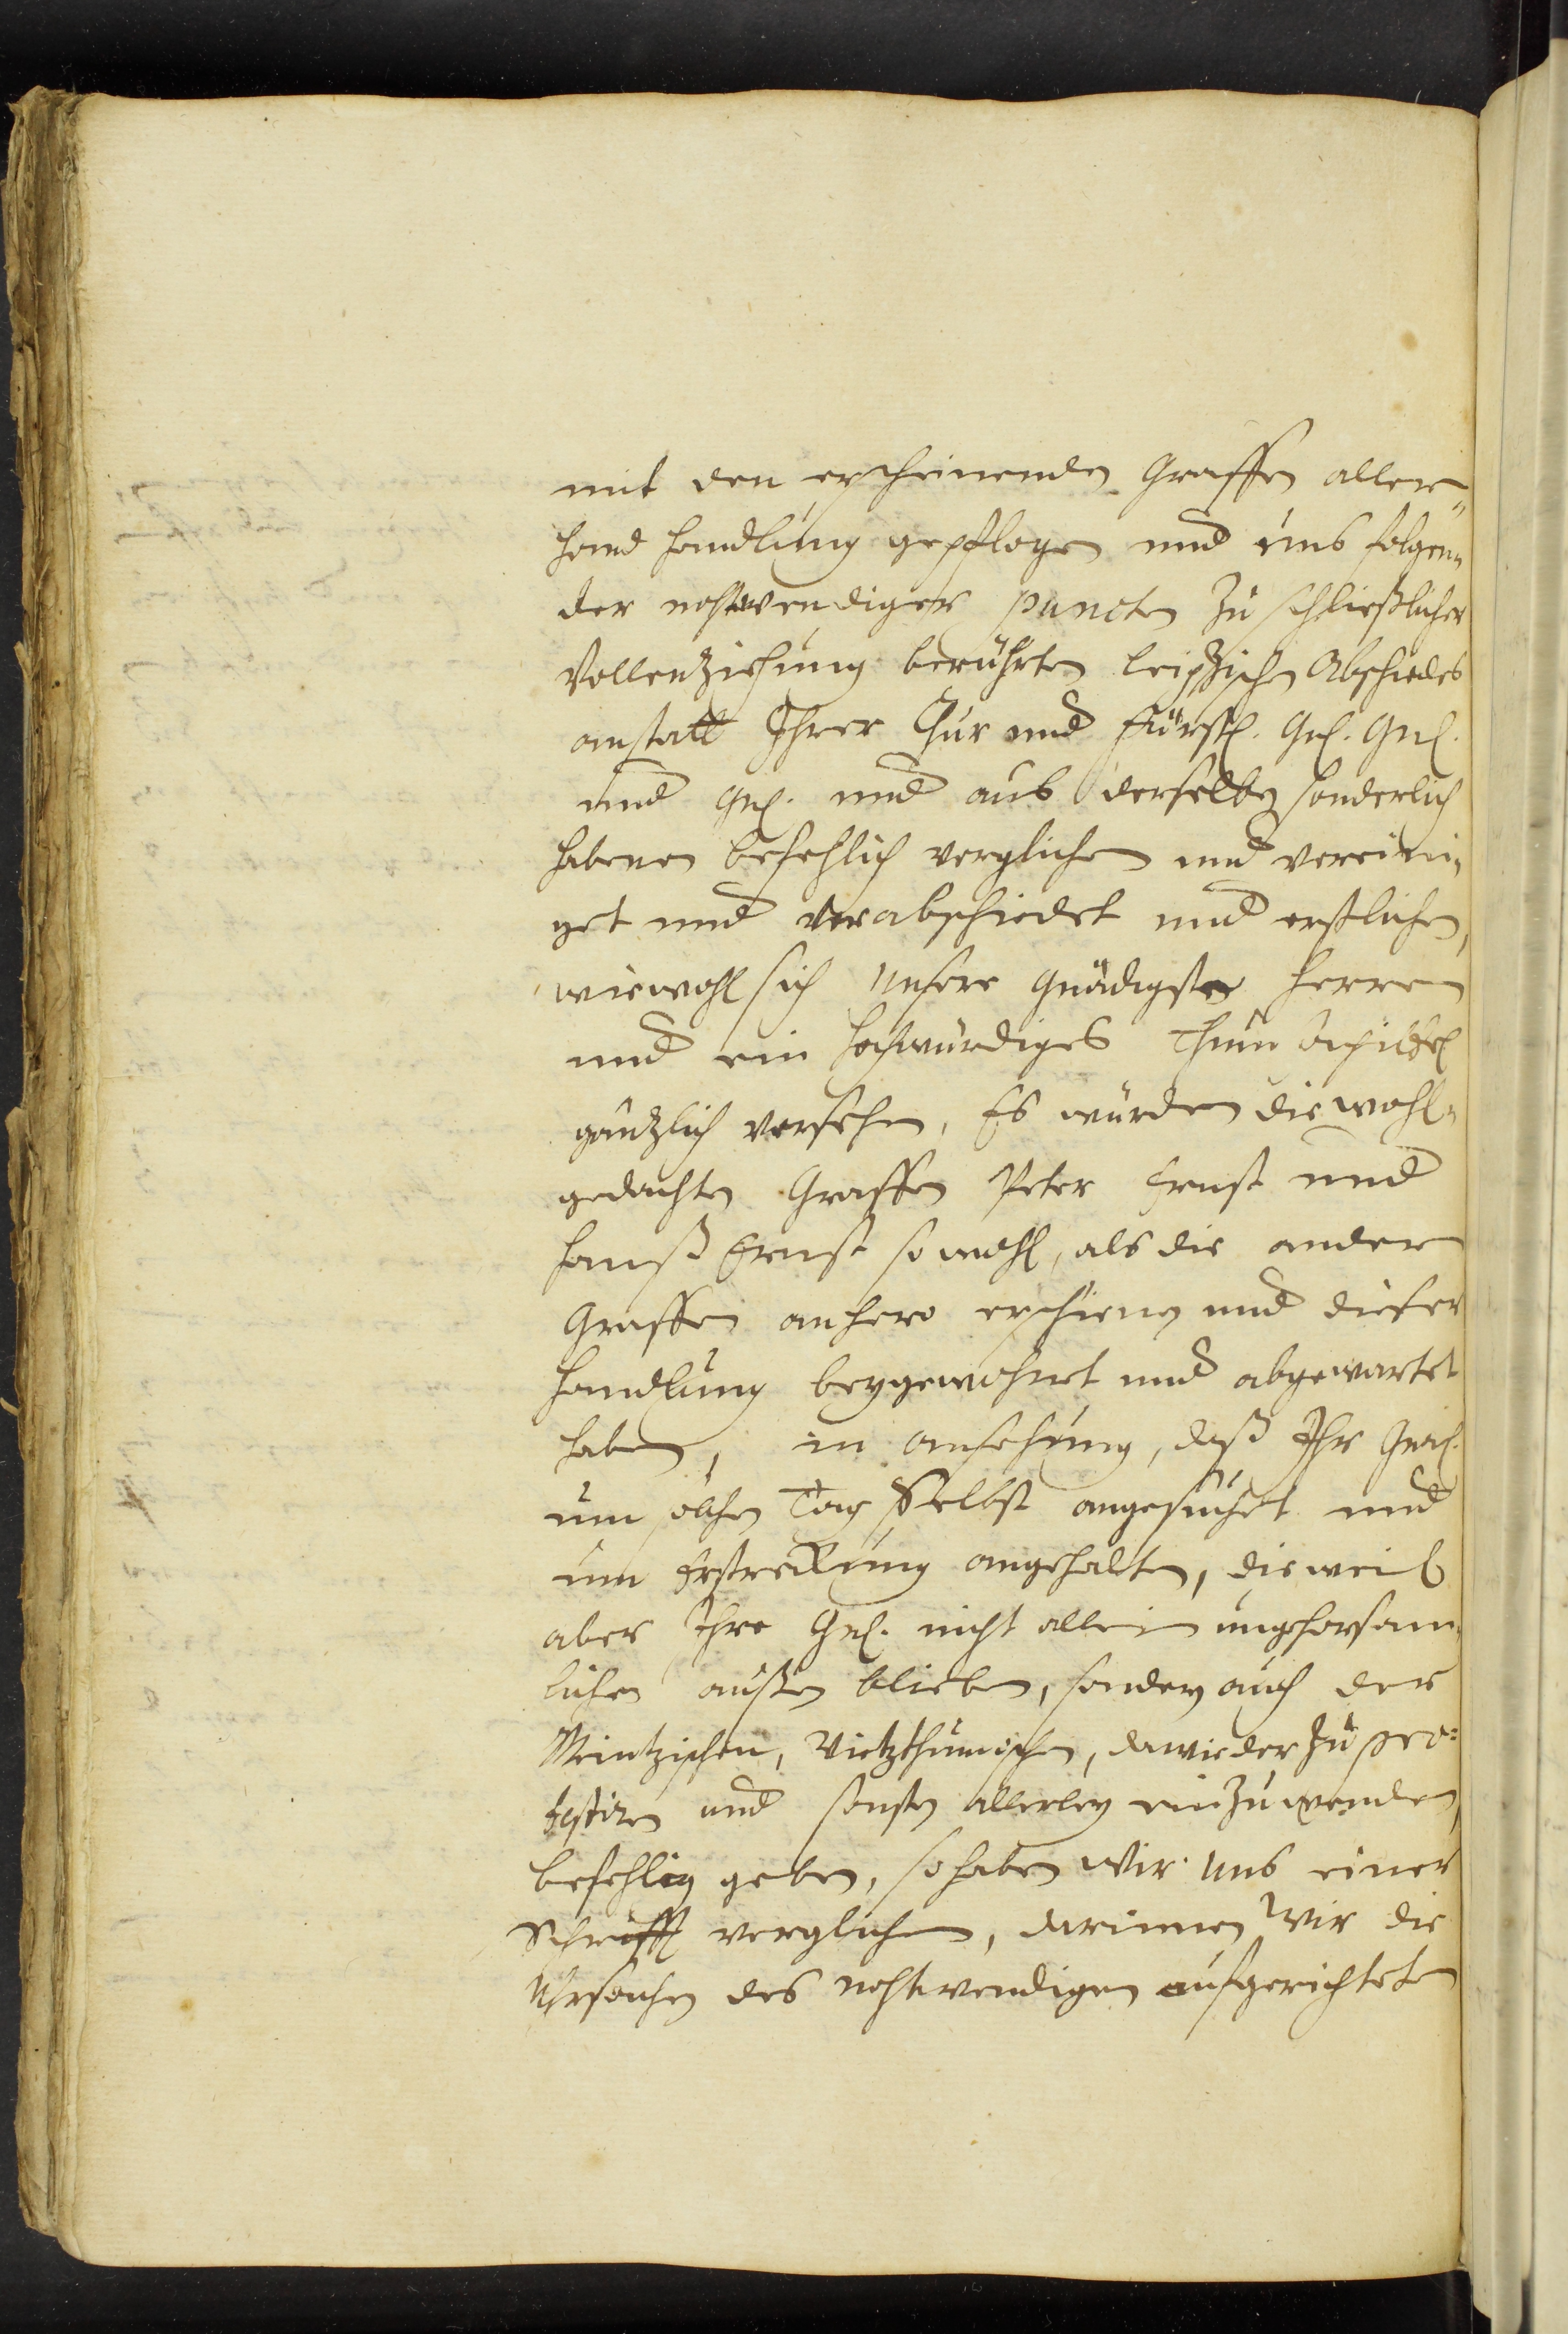 mit den erscheinenden Graffen aller„
hand handlung gepflogen und uns folgen„
der nohtwendiger puncten zu schließlicher
Vollenziehung berührten Leipzischen Abschiedes
anstatt Ihrer Chur und Fürstl. Gn. Gn.
und Gn. und aus derselben sonderlich
habenen befehlich verglichen und vereini„
get und verabschiedet und erstlichen,
wiewohl sich unsere Gnädigste Herren
und ein hochwürdiges Thum Capittel
gäntzlich versehen, Es würden die wohl„
gedachten Graffen Peter Ernst und
Hanß Ernst so wohl, als die andern
Graffen anhero erschienen und dieser
handlung beygewohnet und abgewartet
haben, in ansehung, daß Ihr Gnd.
um solchen Tag Selbst angesuchet und
um Erstreckung angehalten, dieweil
aber Ihre Gn. nicht allein ungehorsam„
lichen außen blieben, sondern auch der
Meintzischen, Vietzthumischen, dawieder zu pro=
testiren und sonsten allerley einzuwenden,
befehlig geben, so haben Wir uns einer
Schrifft verglichen, darinnen Wir die
Uhrsachen des nohtwendigen aufgerichteten